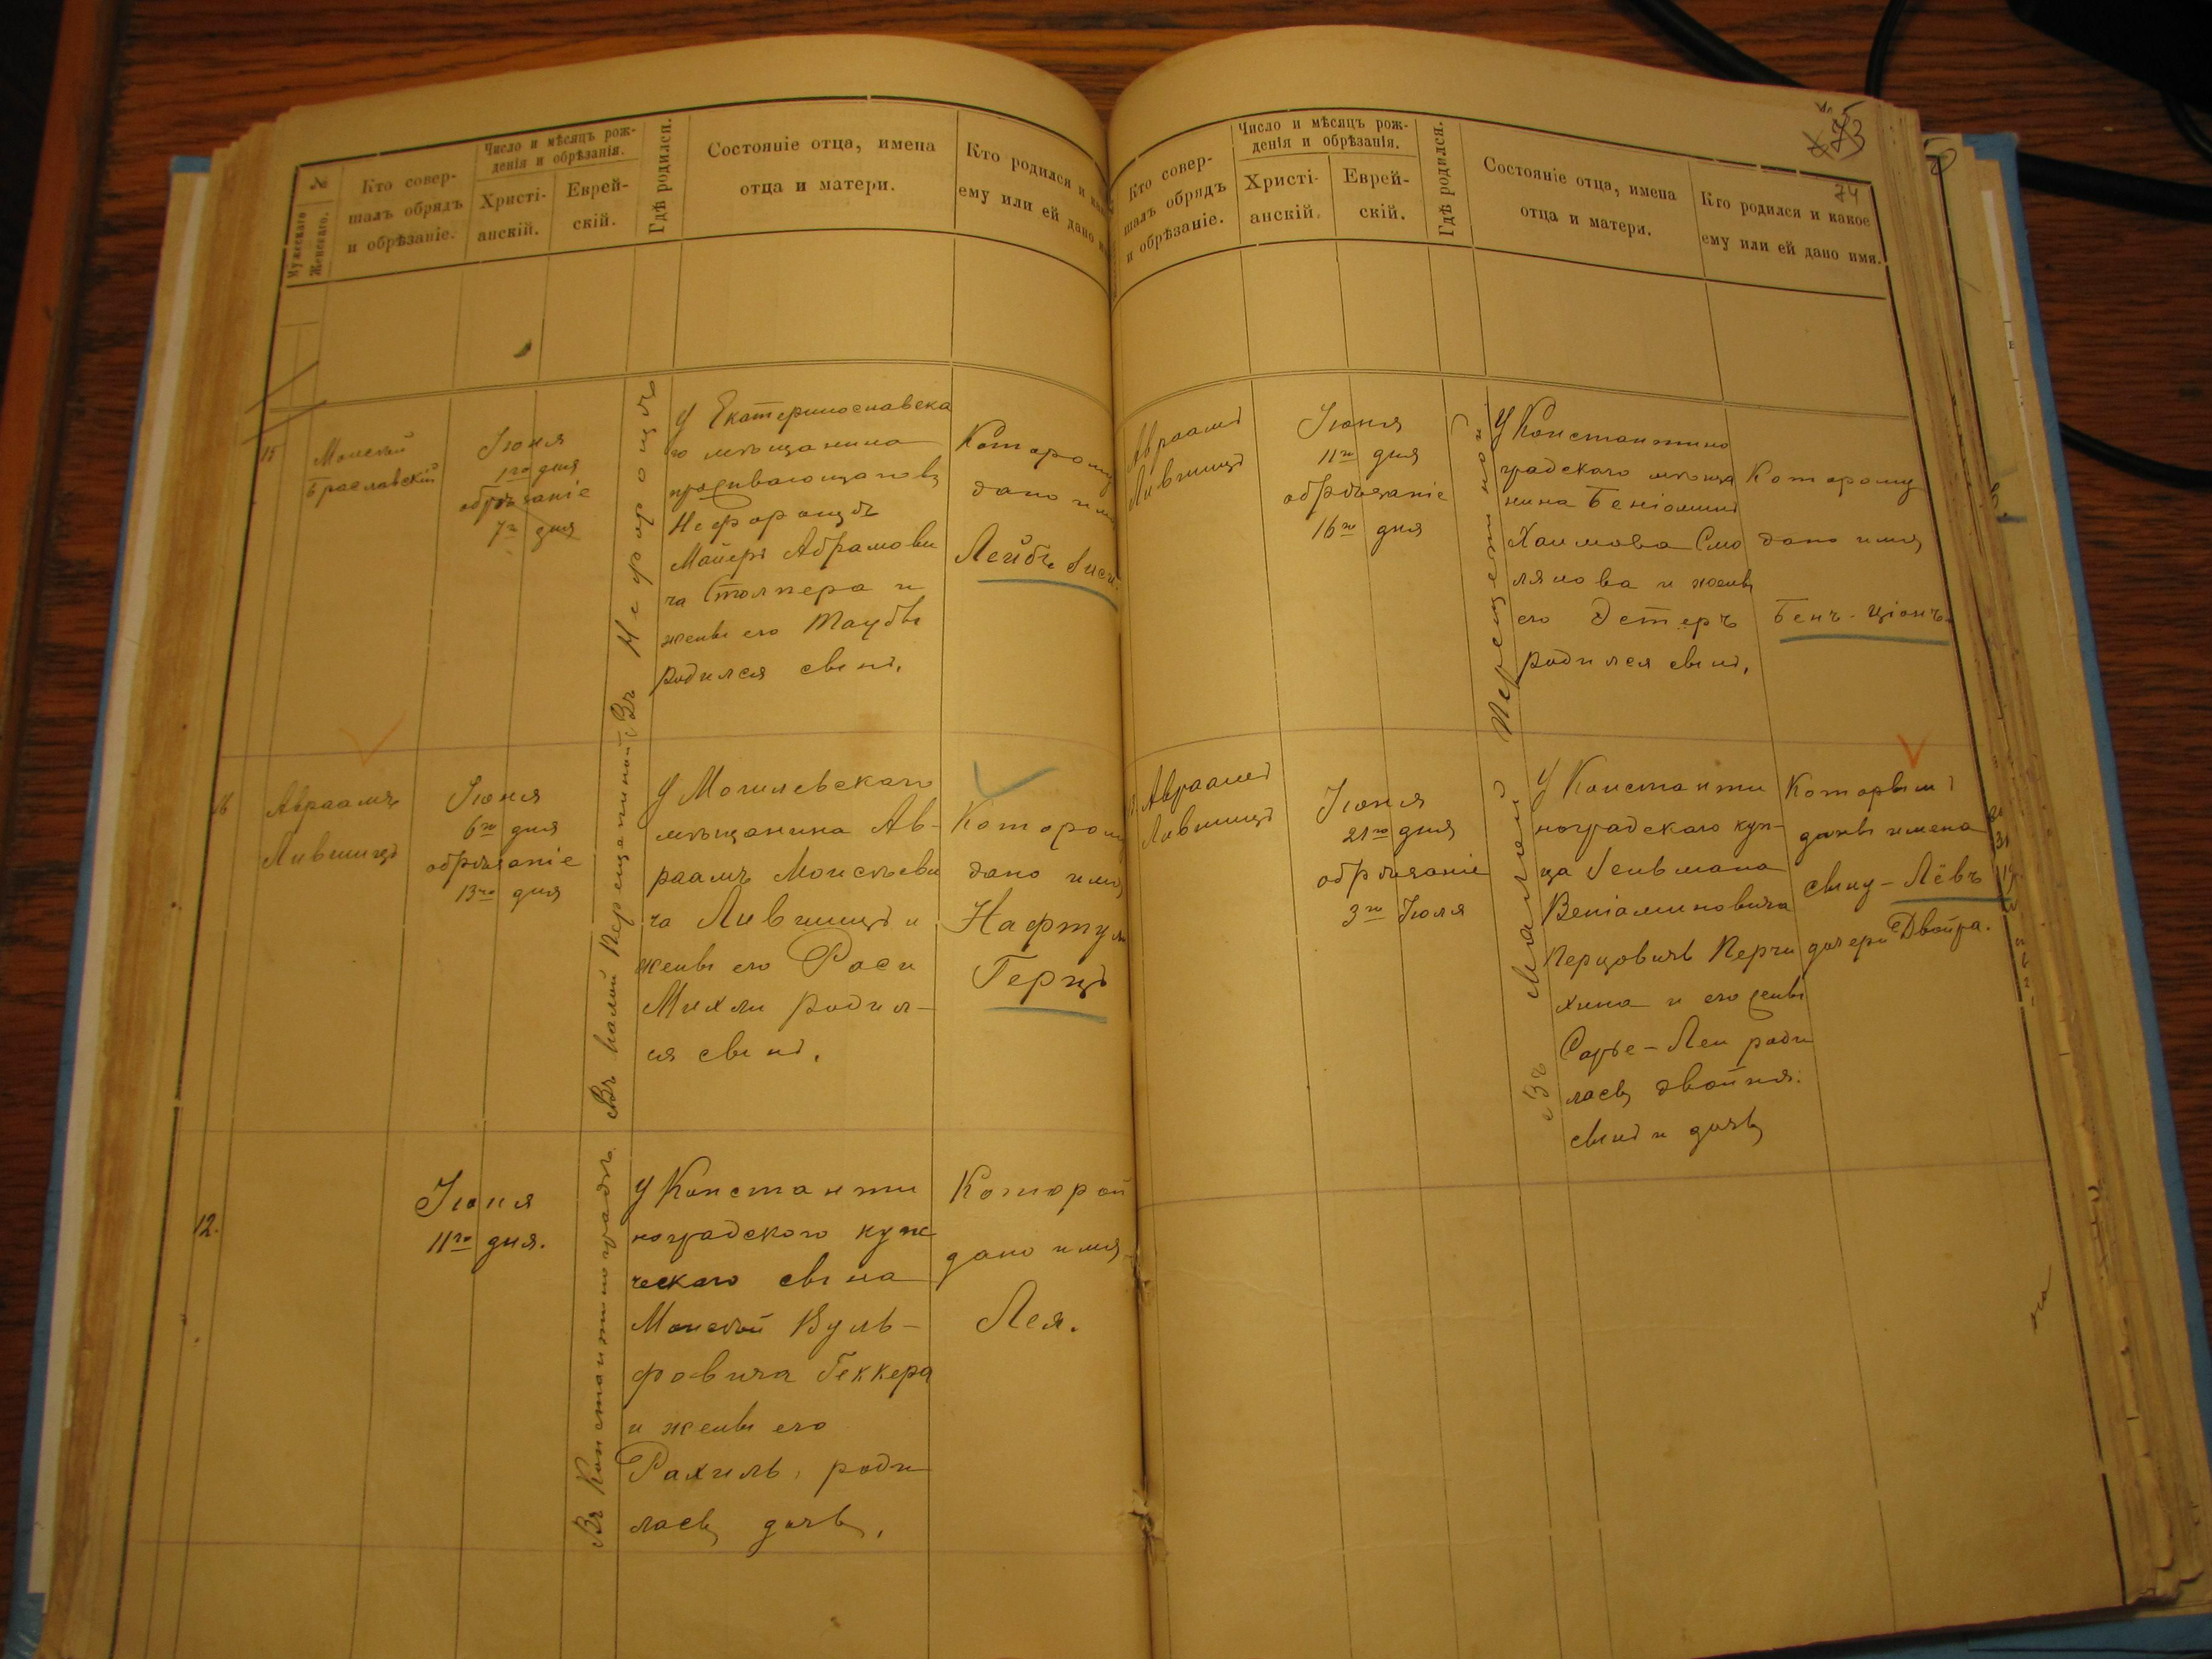 №
Мужескаго
Женскаго.
Кто совер-
шалъ обрядъ
и обрѣзаніе.
Число и мѣсяцъ рож-
денія и обрѣзанія.
Христі-
анскій.
Еврей-
скій.
Гдѣ родился.
Состояніе отца, имена
отца и матери.
Кто родился и
ему или ей дано
15
Моисей
Браславскій
Іюня
1го дня
обрѣзаніе
7го дня
Въ Нефорощѣ
У Екатеринославска
го мѣщанина
проживающаго въ
Нефорощѣ
Майеръ Абрамови
ча Столпера и
жены его Таубы
родился сынъ.
Которому
дано имя
Лейбъ
16
Авраамъ
Лившицъ
Іюня
6го дня
обрѣзаніе
13го дня
Въ малой Перещепиной
У Могилевскаго
мѣщанина Ав-
раамъ Моисѣеви
ча Лившицъ и
жены его Раси
Михли родил-
ся сынъ.
Которому
дано имя
Нафтули
Герцъ
12.
Іюня
11го дня.
Въ Константиноградѣ
У Константи
ноградского купе
ческаго сына
Моисей Вуль-
фовича Геккера
и жены его
Рахиль, роди
лась дочь.
Которой
дано имя
Лея.
73
74
Кто совер-
шалъ обрядъ
и обрѣзаніе.
Число и мѣсяцъ рож-
денія и обрѣзанія.
Христі-
анскій.
Еврей-
скій.
Гдѣ родился.
Состояніе отца, имена
отца и матери.
Кто родился и какое
ему или ей дано имя.
Авраамъ
Лившицъ
Іюня
11го дня
обрѣзаніе
16го дня
Перещепиной
У Константино
градскаго мѣща
нина Беніоминъ
Хаимова Смо
лянова и жены
его Эстеръ
родился сынъ.
Которому
дано имя
Бенъ-Ціонъ.
Авраамъ
Лившицъ
Іюня
21го дня
обрѣзаніе
3го Іюля
Въ
У Константи
ноградскаго куп-
ца Гельмана
Веніаминовича
Перцовичъ Перчи
хина и его жены
Сорѣе-Леи роди
лась двойня:
сынъ и дочь
Которымъ
даны имена
сыну - Лёвъ
дочери Двойра.